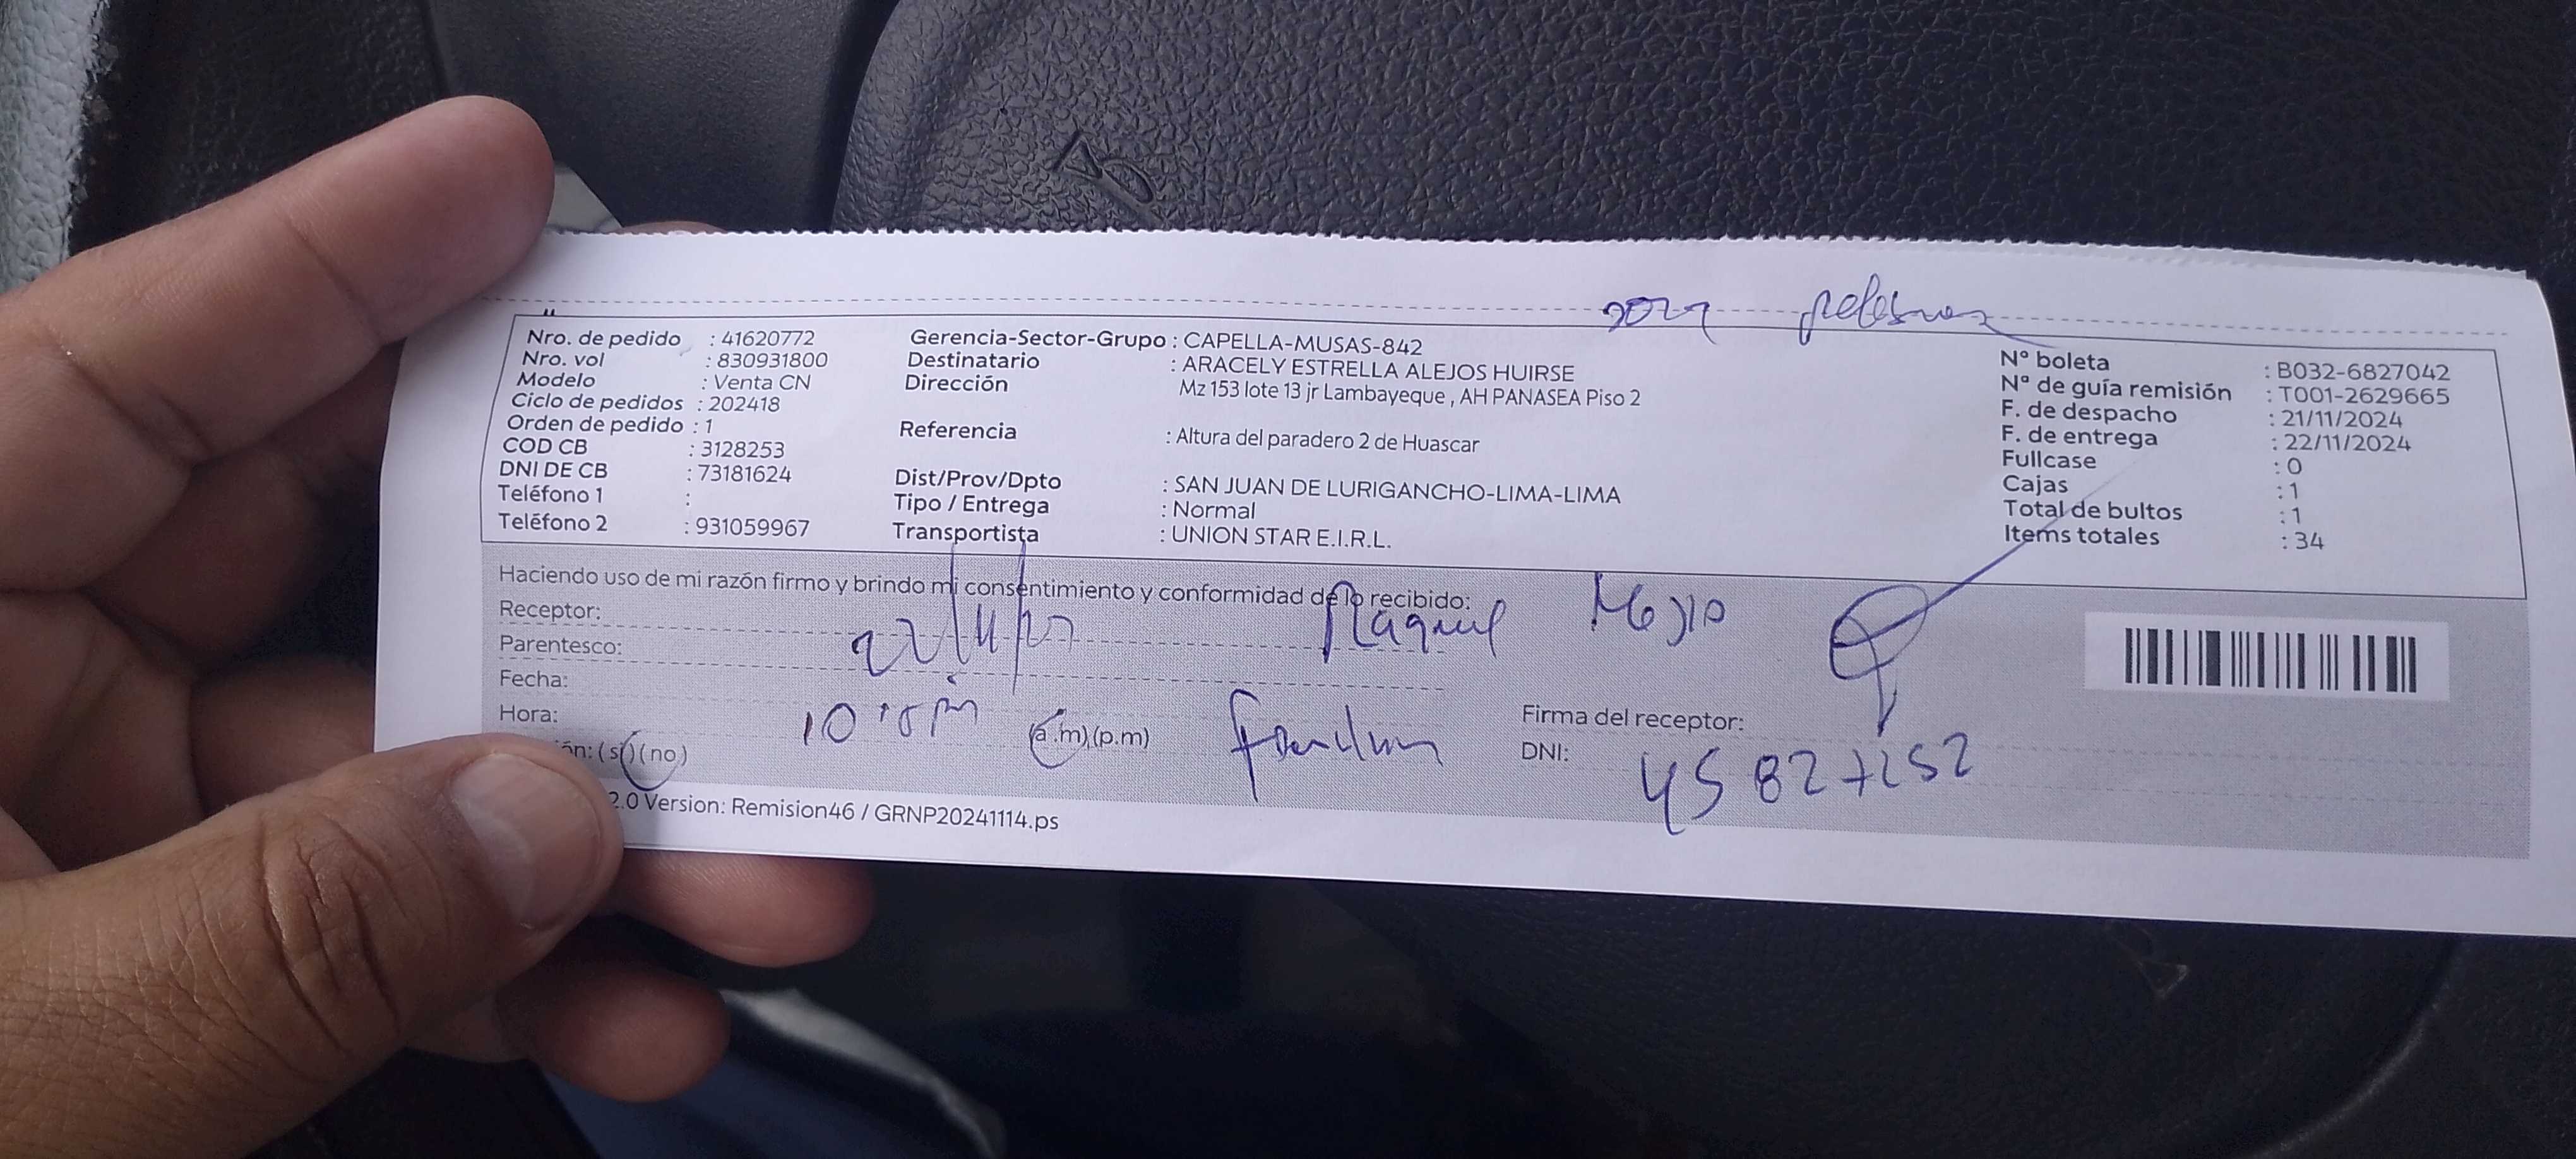 Nro. de pedido : 41620772
Nro. vol : 830931800
Modelo : Venta CN
Ciclo de pedidos : 202418
Orden de pedido : 1
COD CB : 3128253
DNI DE CB : 73181624
Teléfono 1 :
Teléfono 2 : 931059967
Gerencia-Sector-Grupo : CAPELLA-MUSAS-842
Destinatario : ARACELY ESTRELLA ALEJOS HUIRSE
Dirección Mz 153 lote 13 jr Lambayeque , AH PANASEA Piso 2
Referencia : Altura del paradero 2 de Huascar
Dist/Prov/Dpto : SAN JUAN DE LURIGANCHO-LIMA-LIMA
Tipo / Entrega : Normal
Transportista : UNION STAR E.I.R.L.
N° boleta : B032-6827042
Nº de guía remisión : T001-2629665
F. de despacho : 21/11/2024
F. de entrega : 22/11/2024
Fullcase : 0
Cajas : 1
Total de bultos : 1
Items totales : 34
Haciendo uso de mi razón firmo y brindo mi consentimiento y conformidad de lo recibido:
Receptor: Raquel
Parentesco:
Fecha:
Hora: (a.m) (p.m)
ón: (si) (no)
Firma del receptor:
DNI:
2.0 Version: Remision46 / GRNP20241114.ps